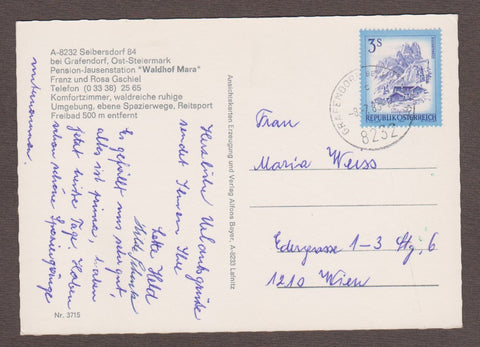 A-8232 Seibersdorf 84
bei Grafendorf, Ost-Steiermark
Pension-Jausenstation "Waldhof Mara"
Franz und Rosa Gschiel
Telefon (0 33 38) 25 65
Komfortzimmer, waldreiche ruhige
Umgebung, ebene Spazierwege, Reitsport
Freibad 500 m entfernt
Herzliche Urlaubsgrüße
sendet Ihnen Ihre
Es gefällt uns sehr gut,
alles ist prima, haben
jetzt heiße Tage. Haben
schon schöne Spaziergänge
unternommen.
Nr. 3715
Ansichtskarten Erzeugung und Verlag Alfons Bayer, A-8233 Lafnitz
3S
REPUBLIK ÖSTERREICH
GRAFENDORF
8232
Frau
Maria Weiss
Edergasse 1-3 Stg. 6
1210 Wien